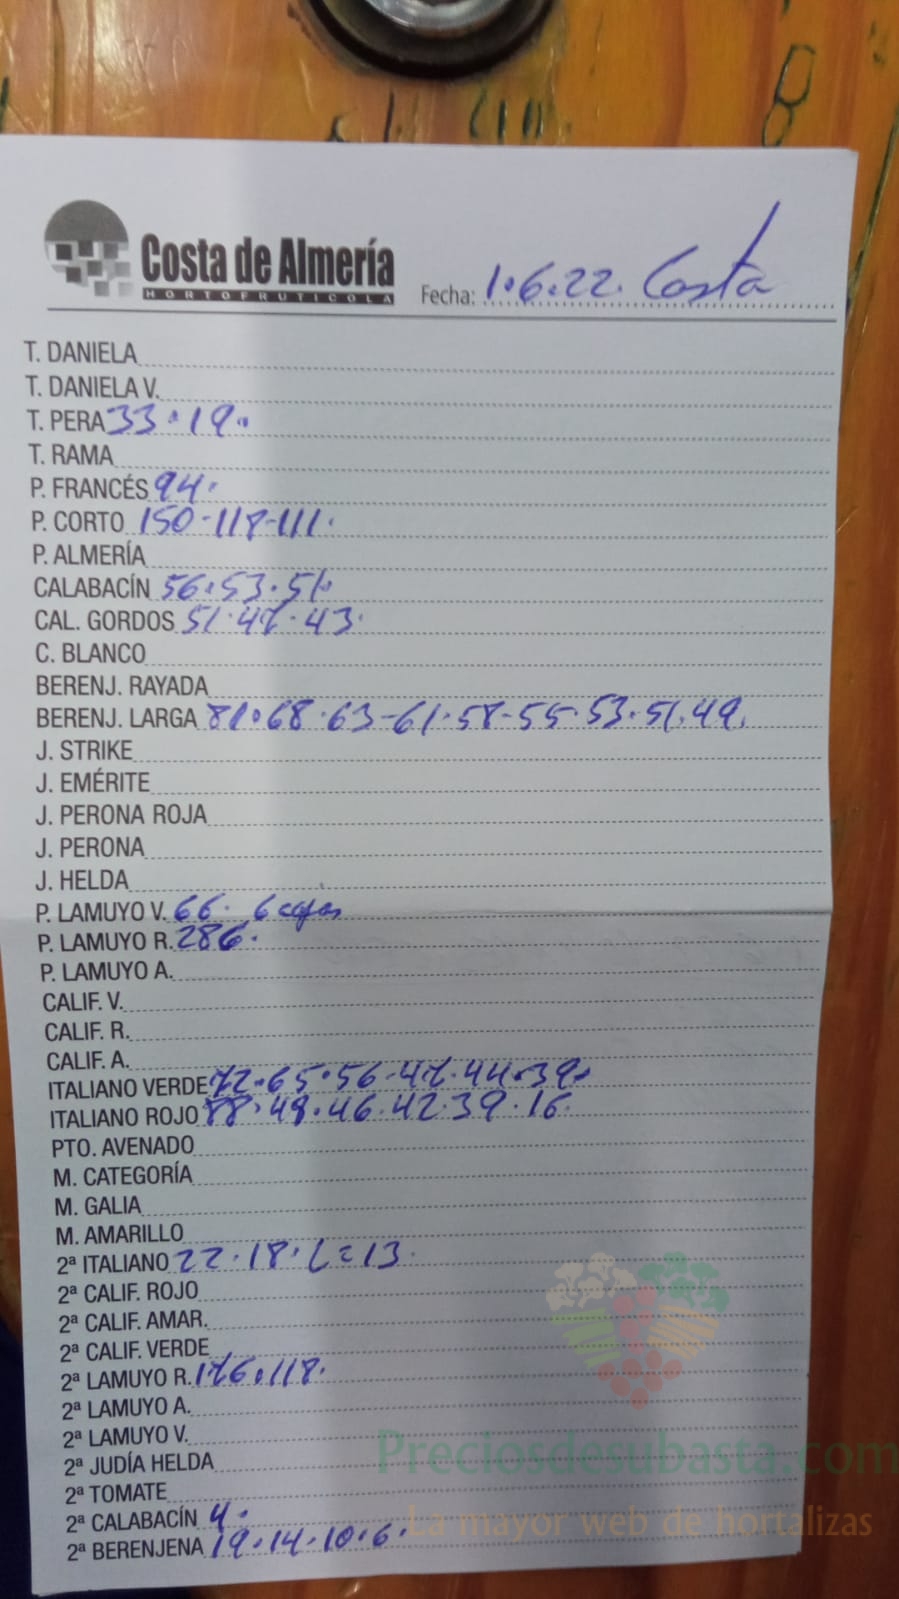 Costa de Almería
HORTOFRUTICOLA
Fecha: 1.6.22. Costa
T. DANIELA
T. DANIELA V.
T. PERA 33.19.
T. RAMA
P. FRANCÉS 94.
P. CORTO 150-118-111.
P. ALMERÍA
CALABACÍN 56.53.51.
CAL. GORDOS 51.47.43.
C. BLANCO
BERENJ. RAYADA
BERENJ. LARGA 81.68.63-61.58-55-53.51.49.
J. STRIKE
J. EMÉRITE
J. PERONA ROJA
J. PERONA
J. HELDA
P. LAMUYO V. 66. 6 cajas
P. LAMUYO R. 286.
P. LAMUYO A.
CALIF. V.
CALIF. R.
CALIF. A.
ITALIANO VERDE 72.65.56-47.44.39.
ITALIANO ROJO 88.48.46.42.39.16.
PTO. AVENADO
M. CATEGORÍA
M. GALIA
M. AMARILLO
2ª ITALIANO 22.18. L=13.
2ª CALIF. ROJO
2ª CALIF. AMAR.
2ª CALIF. VERDE
2ª LAMUYO R. 176.118.
2ª LAMUYO A.
2ª LAMUYO V.
2ª JUDÍA HELDA
2ª TOMATE
2ª CALABACÍN 4.
2ª BERENJENA 19.14.10.6.
Preciosdesubasta.com
La mayor web de hortalizas